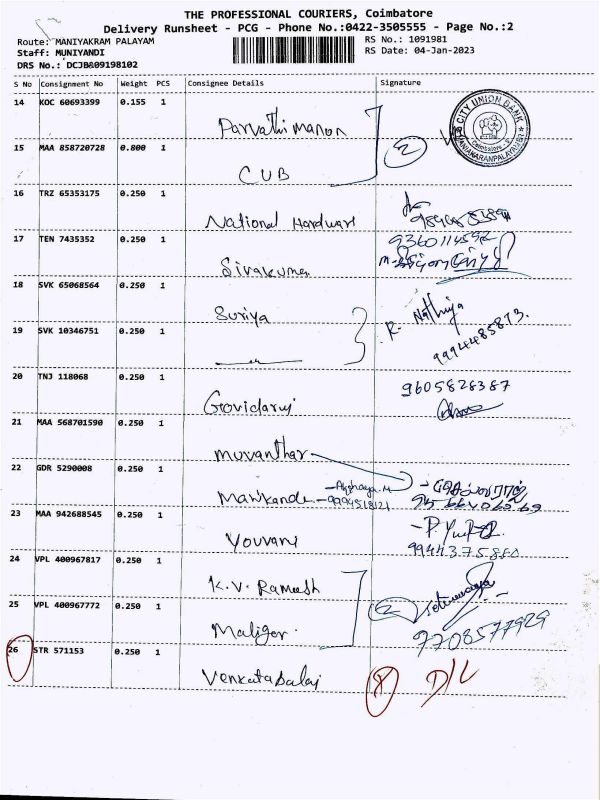 THE PROFESSIONAL COURIERS, Coimbatore
Delivery Runsheet - PCG - Phone No.:0422-3505555 - Page No.:2
Route: MANIYAKRAM PALAYAM
RS No.: 1091981
Staff: MUNIYANDI
RS Date: 04-Jan-2023
DRS No.: DCJB&09198102
S No Consignment No Weight PCS Consignee Details Signature
14 KOC 60693399 0.155 1 Parvathi manon
CITY UNION BANK
15 MAA 858720728 0.800 1 CUB 2
16 TRZ 65353175 0.250 1 National Hardware
17 TEN 7435352 0.250 1 Sivakumar 9360114592
18 SVK 65068564 0.250 1 Suriya R. Nathiya
19 SVK 10346751 0.250 1 9994485873.
20 TNJ 118068 0.250 1 Govidaraj 9605828387
21 MAA 568701590 0.250 1 muvanthar
22 GDR 5290008 0.250 1 Manikande - Akshaya.M - 9994518121
23 MAA 942688545 0.250 1 Youvani 9944375880
24 VPL 400967817 0.250 1 K.V. Ramesh
25 VPL 400967772 0.250 1 Maliger 2 9708577929
26 STR 571153 0.250 1 Venkatabalaj D/L